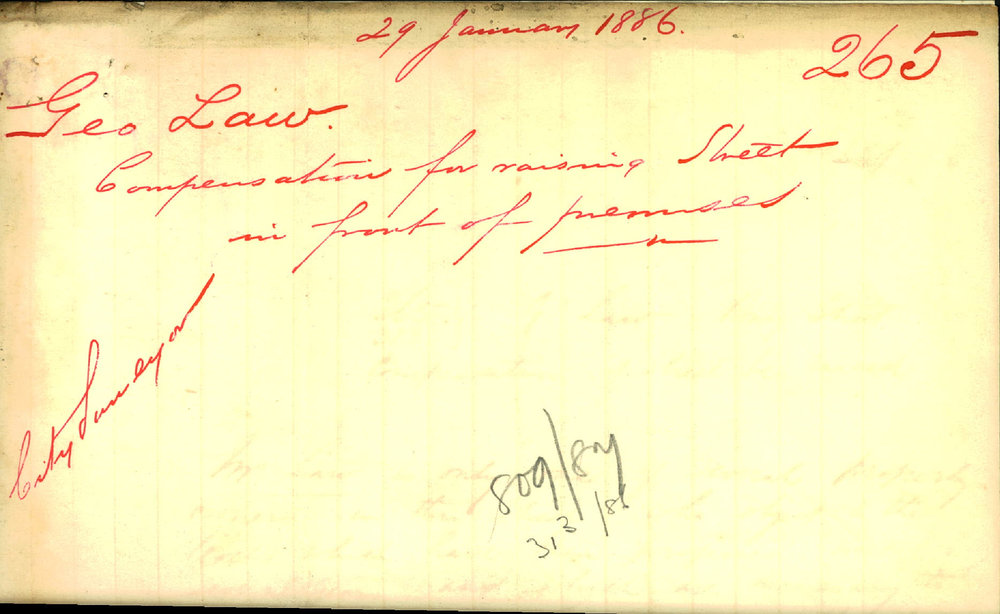 29 January 1886.
265
Geo Law.
Compensation for raising Street
in front of premises.
City Surveyor
809/